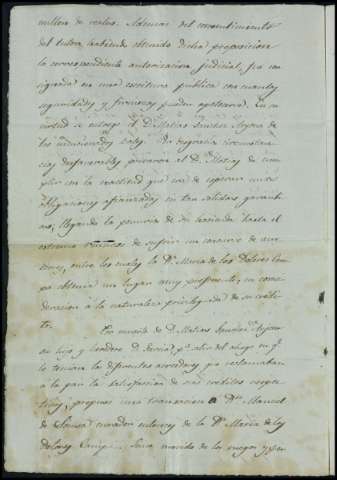 millon de reales. Ademas del consentimiento
del tutor, habiendo obtenido dicha proposicion
la correspondiente autorizacion judicial, fue con
signada en una escritura publica con cuantas
seguridades y firmezas pueden apetecerse. En su
virtud se otorgó el D. Matias
de los Por desgracia circunstan
cias desfavorables privaron al D. Matias de cum
plir con la exactitud que era de esperar unas
obligaciones afianzadas en tan solidas garanti
as, llegando la penuria de su hasta el
extremo de sufrir un concurso de acre
edores, entre los cuales la Dª Maria de los Dolores
pa obtuvo un lugar muy preferente, en consi
deracion á la naturaleza privilegiada de su credi
to.
En muerte de D. Matias
su hijo y heredero D. pª salir del ahogo en qe
le tenian los diferentes acreedores qe reclamaban
á la par la satisfaccion de sus creditos respec
tivos, propuso una transaccion a Dn Manuel
de Sousa curador entonces de la Dª Maria de los
Dolores movido de los ruegos y